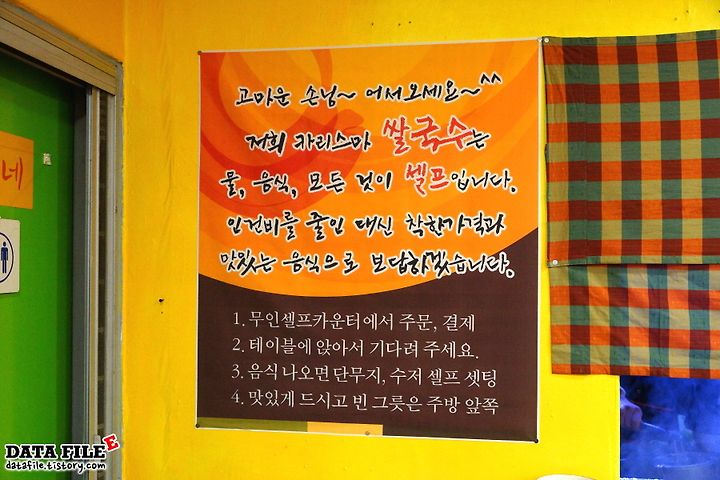 고마운 손님~ 어서오세요~^^
저희 카리스마 쌀국수는
물, 음식, 모든 것이 셀프입니다.
인건비를 줄인 대신 착한가격과
맛있는 음식으로 보답하겠습니다.
1. 무인셀프카운터에서 주문, 결제
2. 테이블에 앉아서 기다려 주세요.
3. 음식 나오면 단무지, 수저 셀프 셋팅
4. 맛있게 드시고 빈 그릇은 주방 앞쪽
네
DATA FILE E
datafile.tistory.com